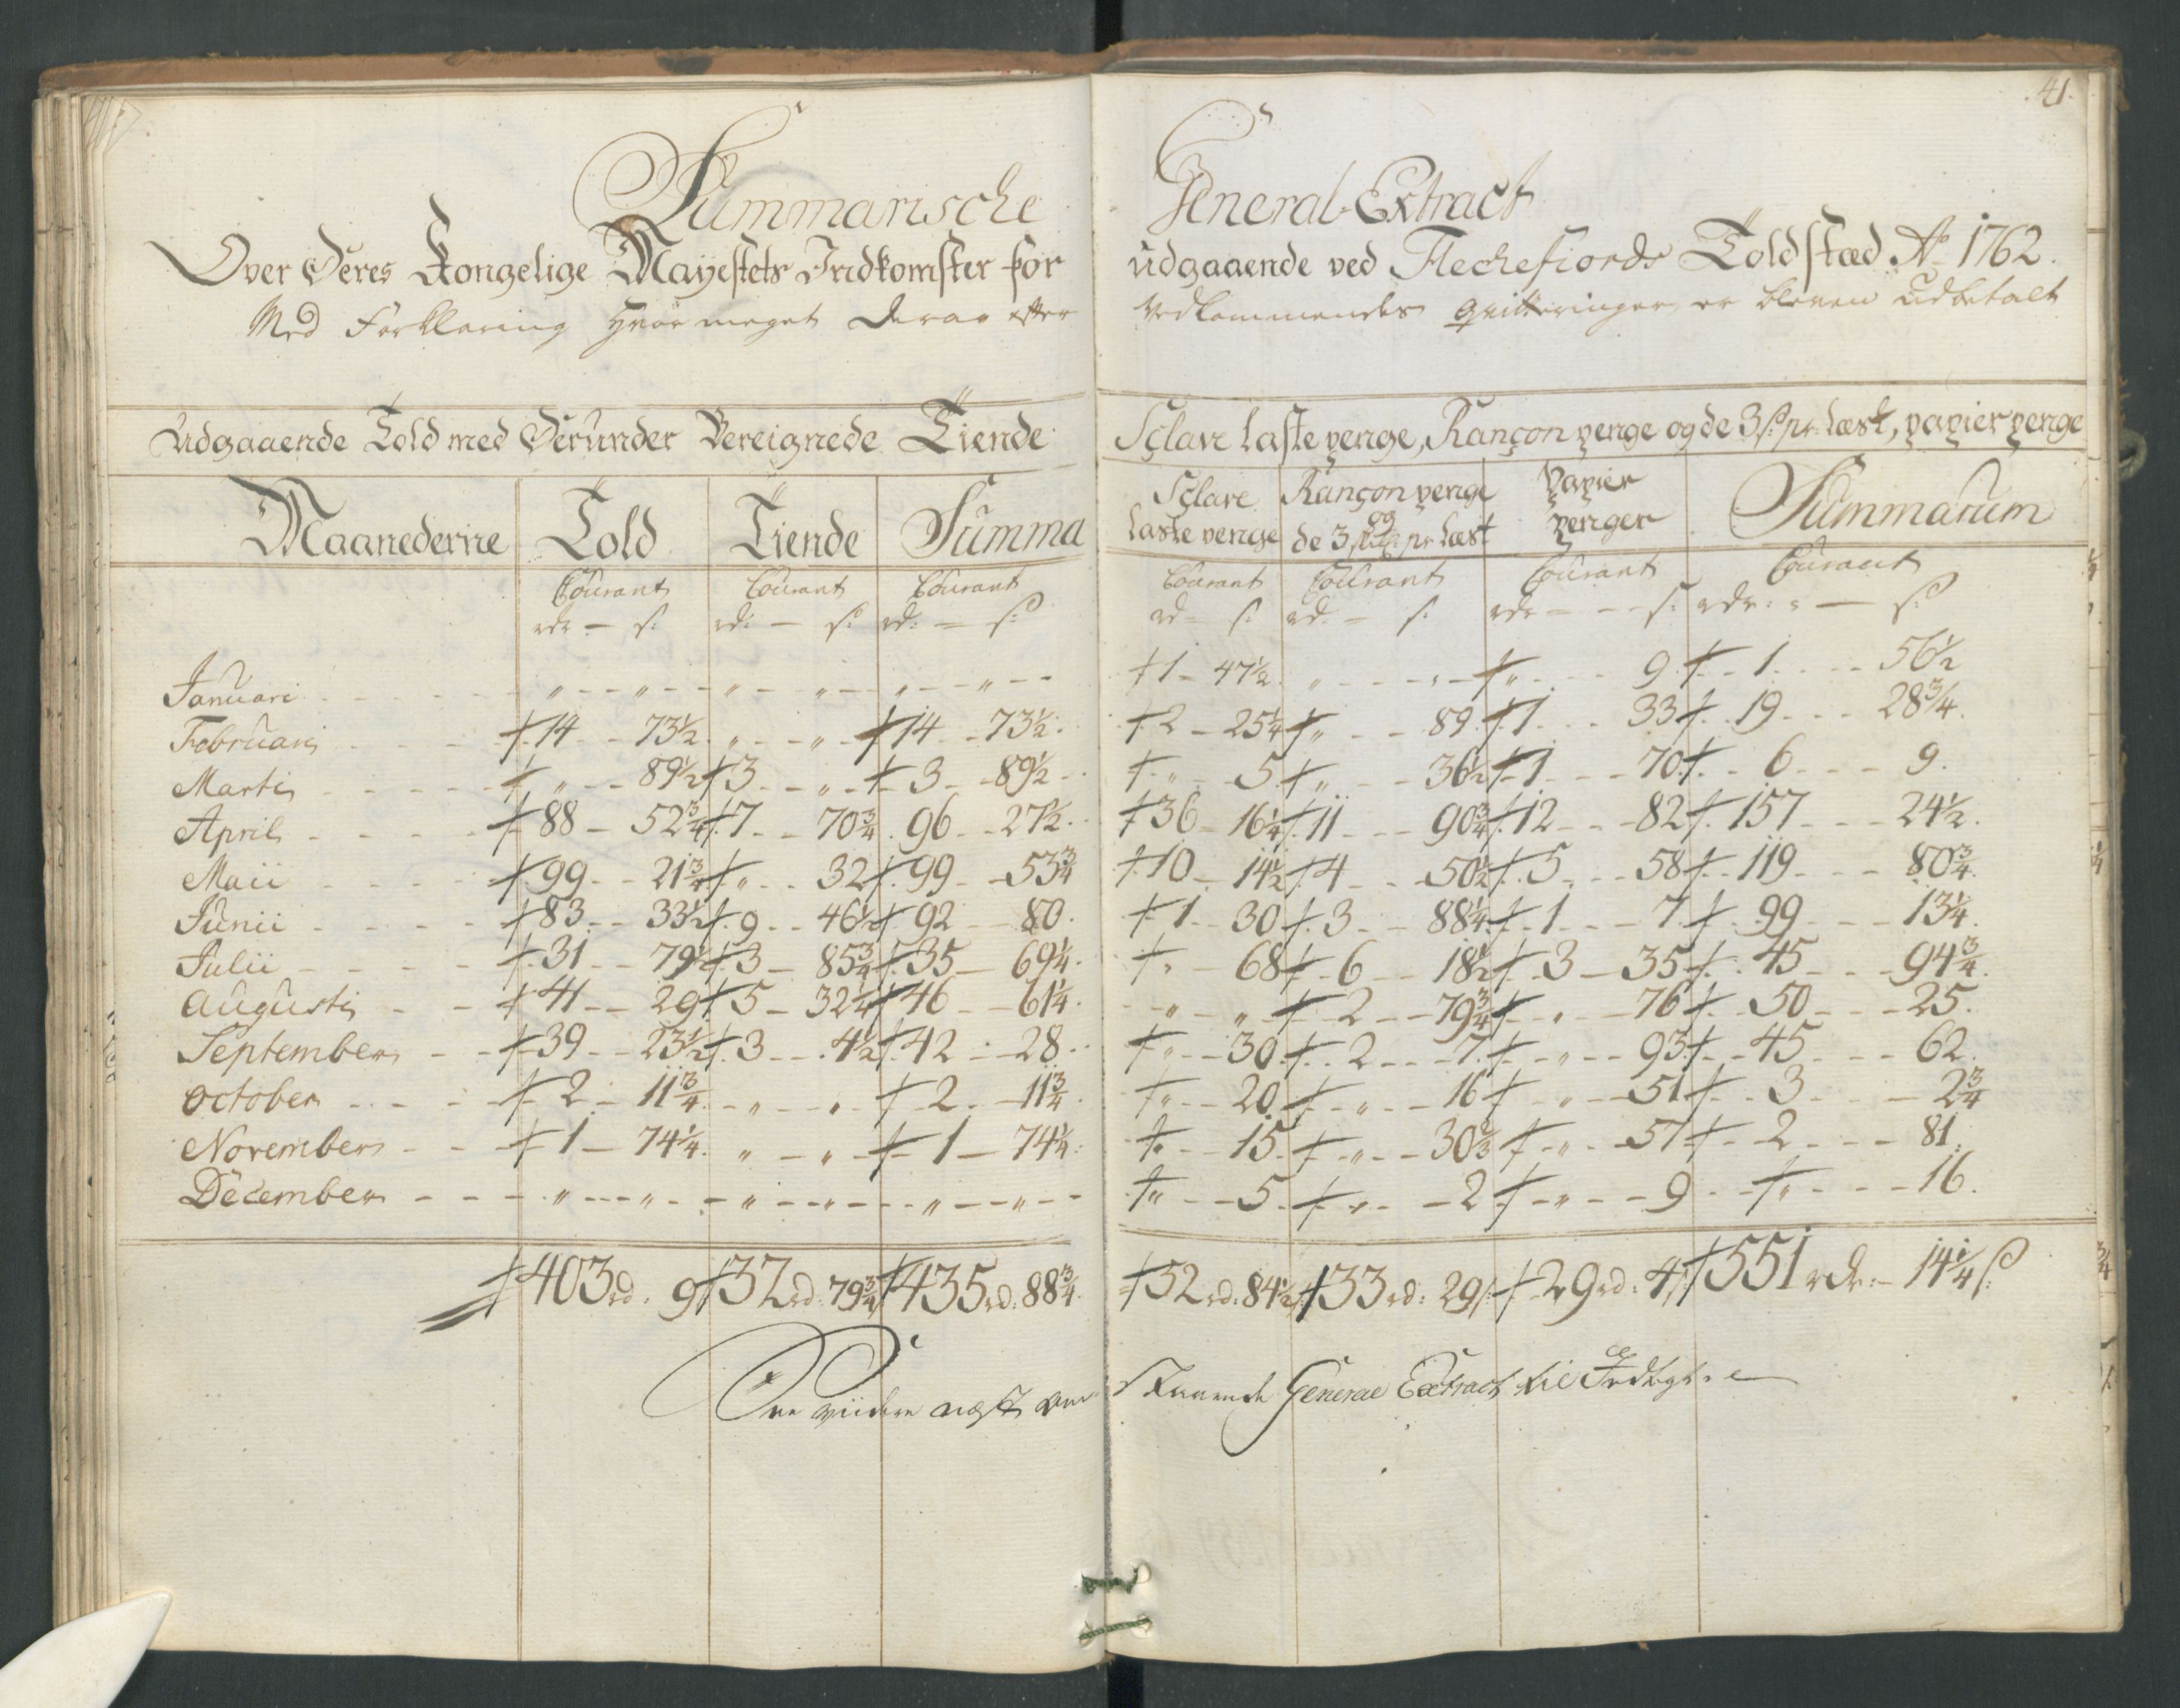 41.
Summarische General-Extract
Over Deres Kongelige Mayestets Indkomster for udgaaende ved Flechefiords Toldstæd Ao 1762.
Med Forklaring Hvor meget deraf efter Vedkommendes qvitteringer er bleven udbetalt
Udgaaende Told med Derunder Bereignede Tiende Sclave Laste penge, Rançon penge og de 3 s: pr: Læst, papier penge
Maanederne Told Tiende Summa Sclave Laste penge Rançon penge og de 3 s: pr Læst Papier penger Summarum
Courant Courant Courant Courant Courant Courant Courant
rdr — s: rd: — s: rd: — s: rd — s: rd: — s: rdr — s: rdr: — s:
Januari „ „ „ „ „ „ 1 47½ „ „ „ 9 1 56½
Februarij 14 73½ „ „ 14 73½ 2 25¼ „ 89 1 33 19 28¾
Martij „ 89½ 3 „ 3 89½ „ 5 „ 36½ 1 70 6 9
April 88 52¾ 7 70¾ 96 27½ 36 16¼ 11 90¾ 12 82 157 24½
Maii 99 21¾ „ 32 99 53¾ 10 14½ 4 50½ 5 58 119 80¾
Junii 83 33½ 9 46½ 92 80 1 30 3 88¼ 1 7 99 13¼
Julii 31 79½ 3 85¾ 35 69¼ „ 68 6 18½ 3 35 45 94¾
Augustij 41 29 5 32¼ 46 61¼ „ „ 2 79¾ „ 76 50 25
September 39 23½ 3 4½ 42 28 „ 30 2 7 „ 93 45 62
October 2 11¾ „ „ 2 11¾ „ 20 „ 16 „ 51 3 2¾
November 1 74¼ „ „ 1 74¼ „ 15 „ 30⅔ „ 57 2 81
December „ „ „ „ „ „ „ 5 „ 2 „ 9 „ 16
403 rd. 9 32 rd: 79¾ 435 rd: 88¾ 52 rd: 84½ 33 rd: 29 s: 29 rd: 4 s: 551 rdr: 14¼ s:
viidere næst General Extract til